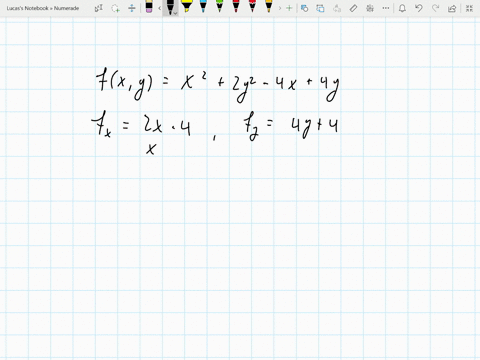 Lucas's Notebook » Numerade
f(x, y) = x² + 2y² - 4x + 4y
f_x = 2x - 4 , f_y = 4y + 4
x